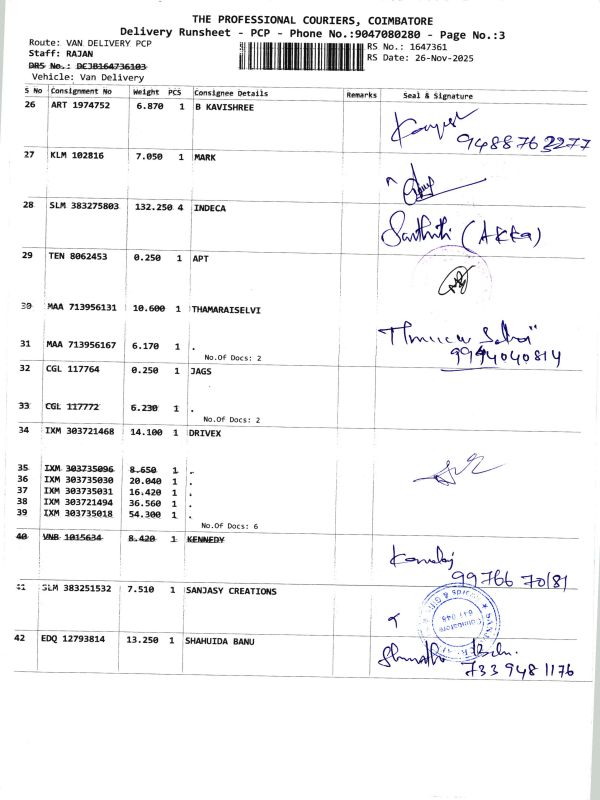 THE PROFESSIONAL COURIERS, COIMBATORE
Delivery Runsheet - PCP - Phone No.:9047080280 - Page No.:3
Route: VAN DELIVERY PCP
RS No.: 1647361
Staff: RAJAN
RS Date: 26-Nov-2025
DRS No.: DEJB164736103
Vehicle: Van Delivery
S No Consignment No Weight PCS Consignee Details Remarks Seal & Signature
26 ART 1974752 6.870 1 B KAVISHREE
9488763277
27 KLM 102816 7.050 1 MARK
28 SLM 383275803 132.250 4 INDECA
(AKKA)
29 TEN 8062453 0.250 1 APT
30 MAA 713956131 10.600 1 THAMARAISELVI
31 MAA 713956167 6.170 1 .
9944040814
No.Of Docs: 2
32 CGL 117764 0.250 1 JAGS
33 CGL 117772 6.230 1 .
No.Of Docs: 2
34 IXM 303721468 14.100 1 DRIVEX
35 IXM 303735096 8.650 1 .
36 IXM 303735030 20.040 1 .
37 IXM 303735031 16.420 1 .
38 IXM 303721494 36.560 1 .
39 IXM 303735018 54.300 1 .
No.Of Docs: 6
40 VNB 1015634 8.420 1 KENNEDY
99766 70181
41 SLM 383251532 7.510 1 SANJASY CREATIONS
Coimbatore
42 EDQ 12793814 13.250 1 SHAHUIDA BANU
733 948 1176